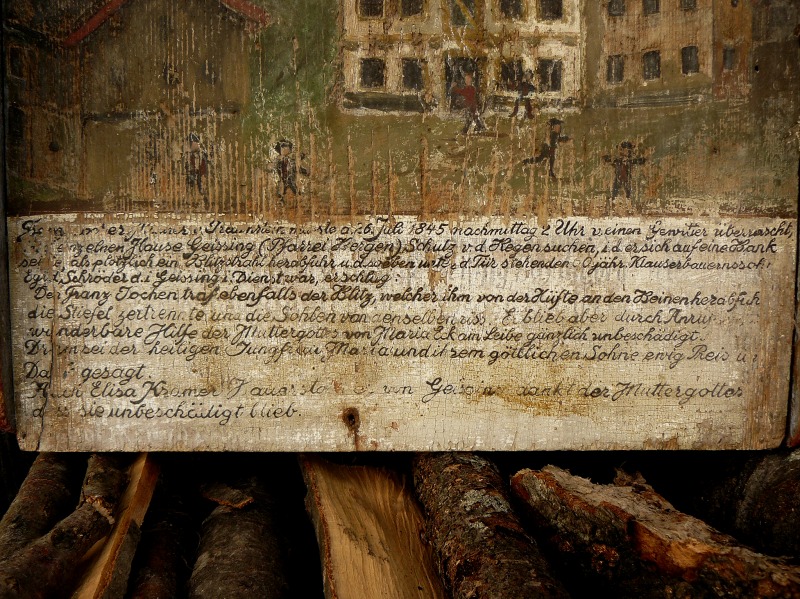 Traunstein musste a. 26. Juli 1845 nachmittag 2 Uhr v. einen Gewitter überrascht,
einzelnen Hause Geissing (Pfarrei Bergen) Schutz v. d. Regen suchen, i.d. er sich auf eine Bank
als plötzlich ein Blitzstrahl herabfuhr u. d. soeben unt. d. Tür stehenden jähr. Klauserbauernsoh
Schröder d. i. Geissing i. Dienst war, erschlug.
Den Franz Jochen traf ebenfalls der Blitz, welcher ihm von der Hüfte an den Beinen herabfuh
die Stiefel zertrennte und die Sohlen von denselben riss. Er blieb aber durch Anruf
wunderbare Hilfe der Muttergottes von Maria Eck am Leibe gänzlich unbeschädigt.
Drum sei der heiligen Jungfrau Maria und ihrem göttlichen Sohne ewig Preis u.
Dank gesagt.
Auch Elisa Kramer von dankt der Muttergottes
dass sie unbeschädigt blieb.